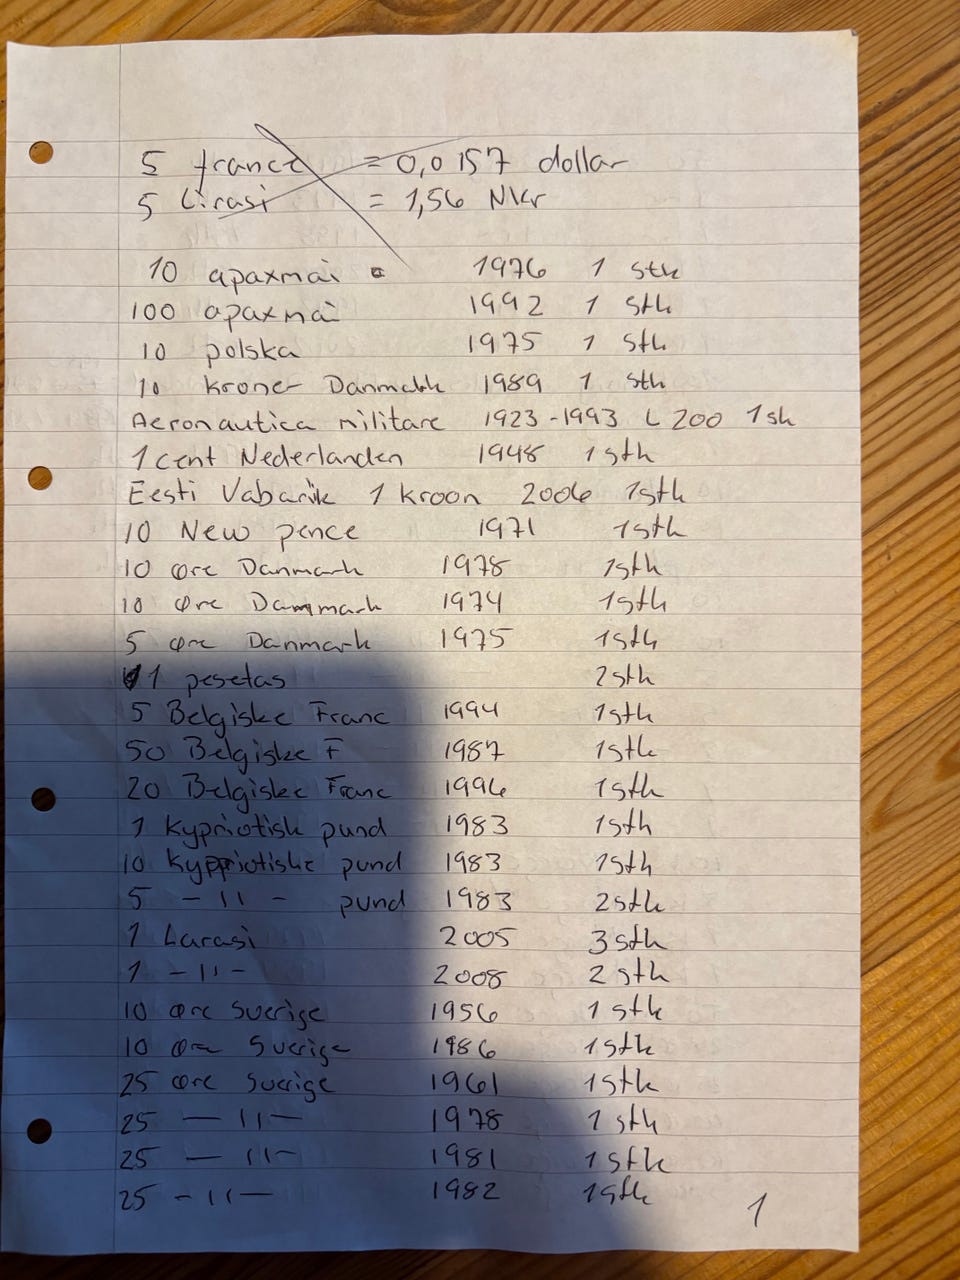 5 france = 0,0157 dollar
5 Lirasi = 1,56 Nkr
10 apaxmai 1976 1 stk
100 apaxmai 1992 1 stk
10 polska 1975 1 stk
10 kroner Danmark 1989 1 stk
Aeronautica militare 1923-1993 L 200 1 sk
1 cent Nederlanden 1948 1 stk
Eesti Vabarik 1 kroon 2006 1stk
10 New pence 1971 1stk
10 øre Danmark 1978 1stk
10 øre Danmark 1974 1stk
5 øre Danmark 1975 1stk
1 pesetas 2stk
5 Belgiske Franc 1994 1stk
50 Belgiske F 1987 1stk
20 Belgiske Franc 1996 1stk
1 kypriotisk pund 1983 1stk
10 kyppriotiske pund 1983 1stk
5 -11- pund 1983 2stk
1 Larasi 2005 3 stk
1 -11- 2008 2 stk
10 øre Sverige 1956 1 stk
10 øre Sverige 1986 1stk
25 øre Sverige 1961 1stk
25 -11- 1978 1 stk
25 -11- 1981 1 stk
25 -11- 1982 1stk
1